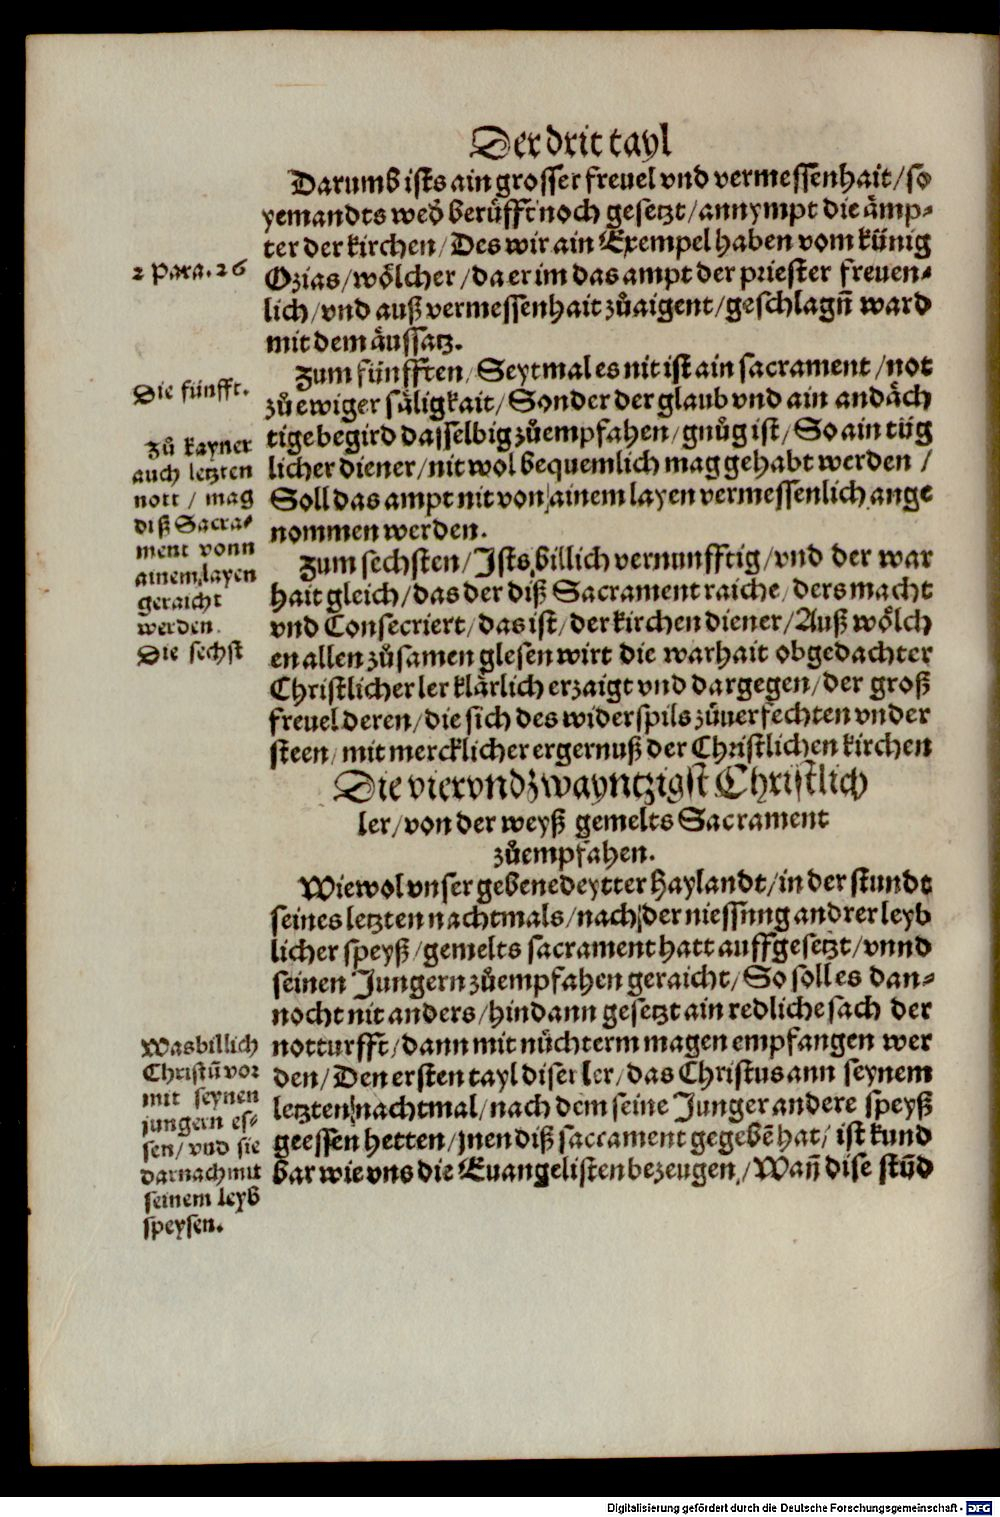 Der drit tayl
Darumb ists ain grosser freuel vnd vermessenhait / so
yemandts wed̕ berüfft noch gesetzt / annympt die ämp⸗
ter der kirchen / Des wir ain Exempel haben vom künig
2 Para. 26
Ozias / wölcher / da er im das ampt der priester freuen⸗
lich / vnd auß vermessenhait zůaigent / geschlagn̄ ward
mit dem äussatz.
Zum fünfften / Seytmal es nit ist ain sacrament / not
Die fünfft.
zů ewiger säligkait / Sonder der glaub vnd ain andäch
tige begird dasselbig zůempfahen / gnůg ist / So ain tüg
licher diener / nit wol bequemlich mag gehabt werden /
Soll das ampt nit von ainem layen vermessenlich ange
nommen werden.
Zů kayner
auch letzten
nott / mag
diß Sacra⸗
ment vonn
ainem layen
geraicht
werden.
Zum sechsten / Ists billich vernunfftig / vnd der war
hait gleich / das der diß Sacrament raiche / ders macht
vnd Consecriert / das ist / der kirchen diener / Auß wölch
Die sechst
en allen zůsamen glesen wirt die warhait obgedachter
Christlicher ler klärlich erzaigt vnd dargegen / der groß
freuel deren / die sich des widerspils zůuerfechten vnder
steen / mit mercklicher ergernuß der Christlichen kirchen
Die vierundzwayntzigst Christlich
ler / von der weyß gemelts Sacrament
zůempfahen.
Wiewol vnser gebenedeytter Haylandt / in der stundt
seines letzten nachtmals / nach der niessung andrer leyb
licher speyß / gemelts sacrament hatt auffgesetzt / vnnd
seinen Jungern zůempfahen geraicht / So soll es dan⸗
nocht nit anders / hindann gesetzt ain redliche sach der
notturfft / dann mit nüchterm magen empfangen wer
den / Den ersten tayl diser ler / das Christus ann seynem
letzten nachtmal / nach dem seine Junger andere speyß
geessen hetten / jnen diß sacrament gegebē hat / ist kund
bar wie vns die Euangelisten bezeugen / Wañ dise stūd
Was billich
Christū vor
mit seynen
jungern es⸗
sen / vnd sie
darnach mit
seinem leyb
speysen.
Digitalisierung gefördert durch die Deutsche Forschungsgemeinschaft - DFG